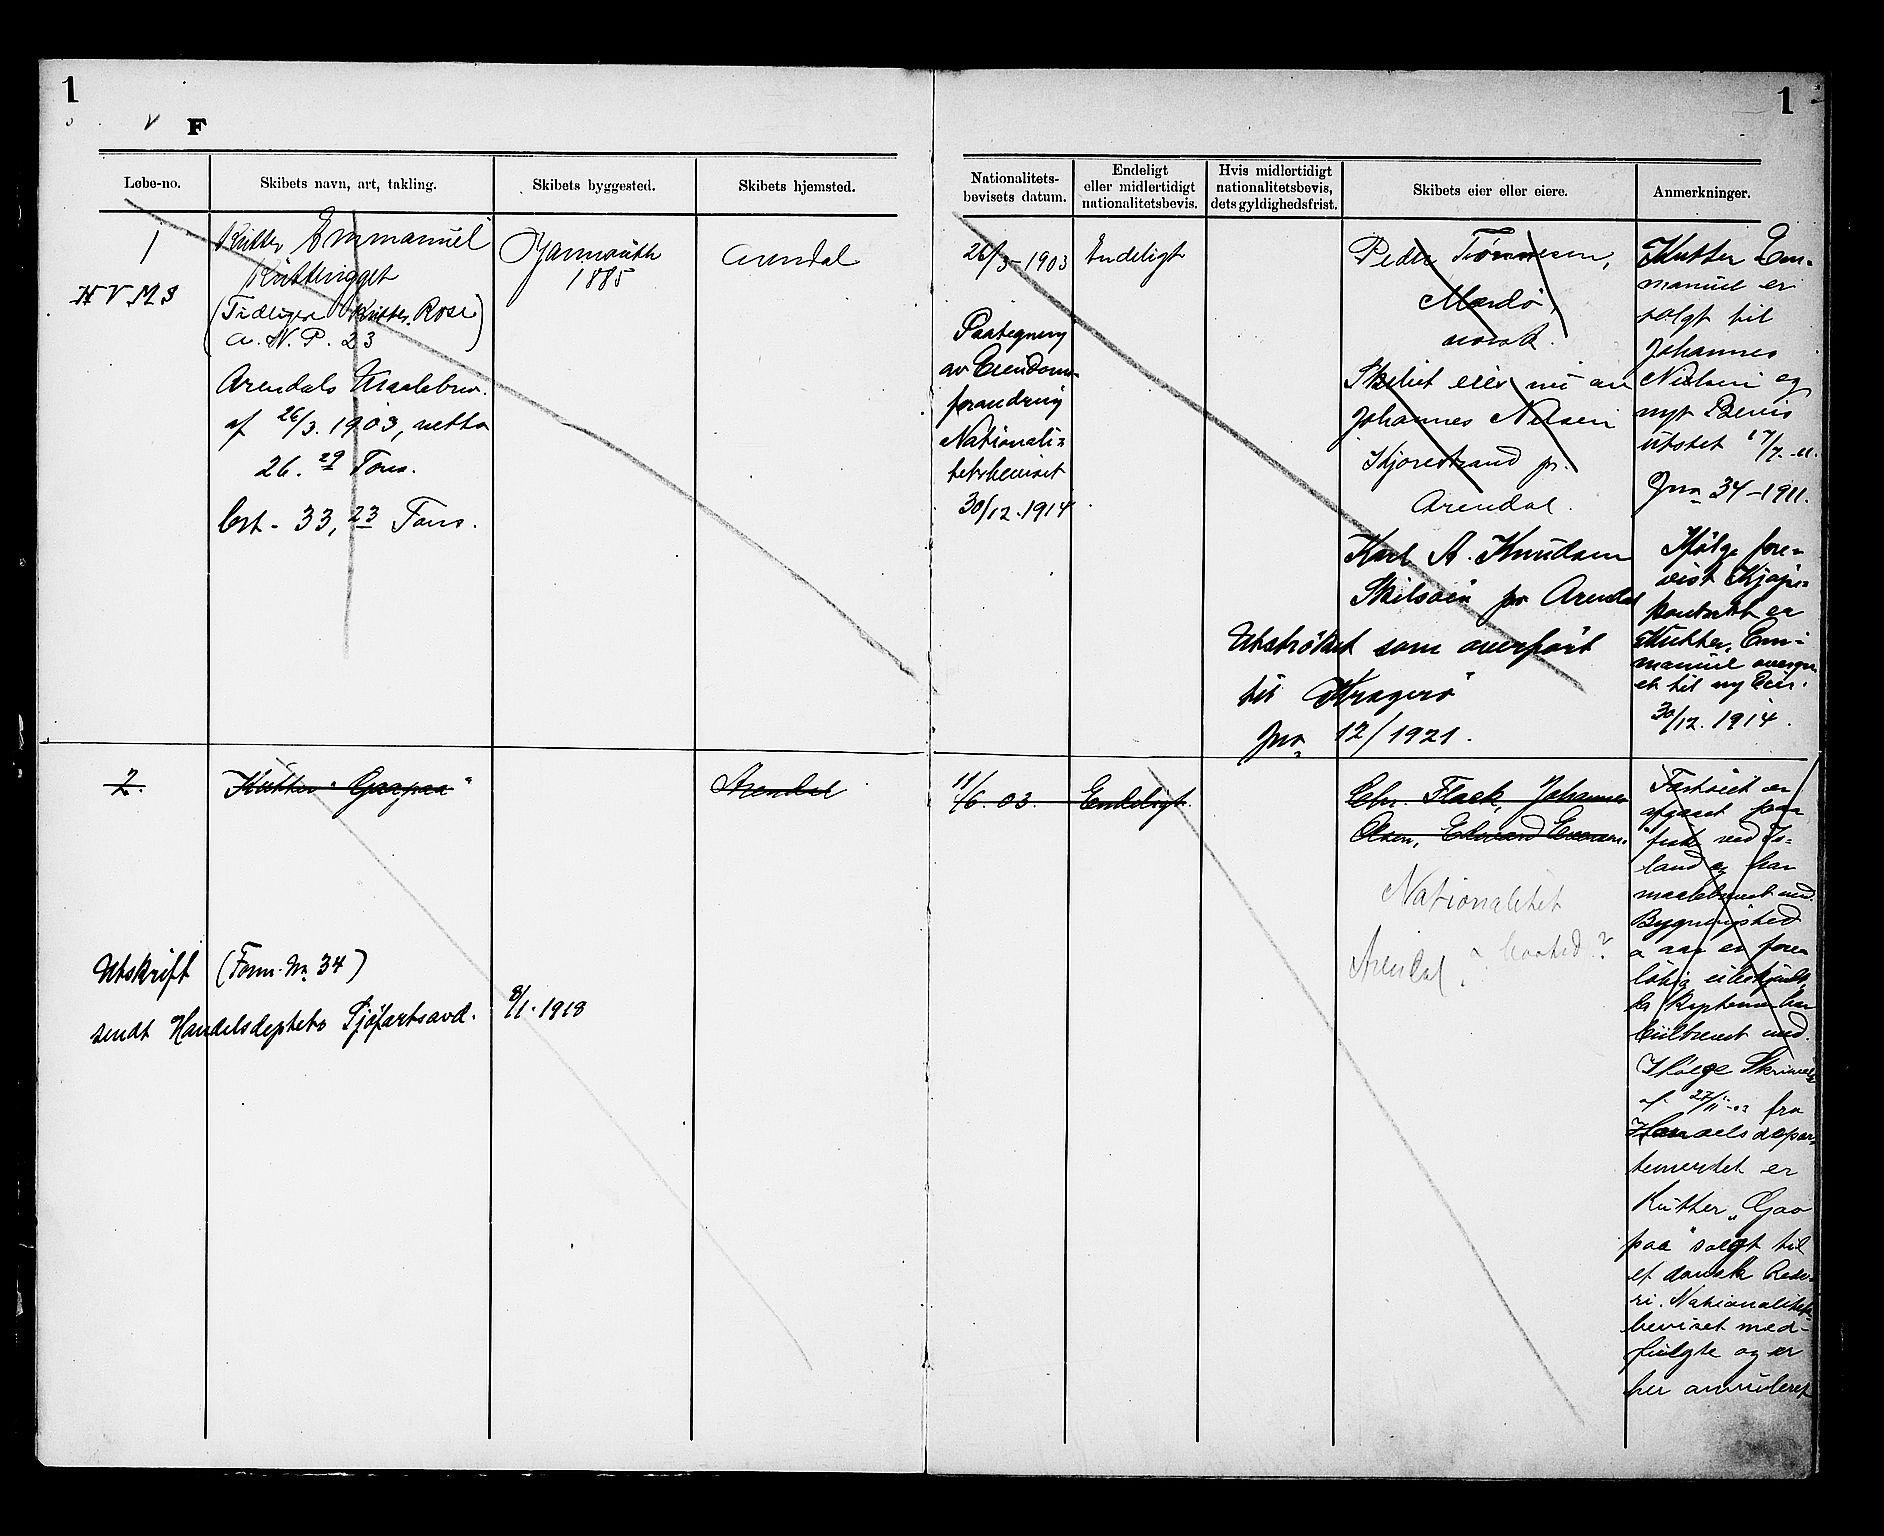 1
F
Løbe-no.
Skibets navn, art, takling.
Skibets byggested.
Skibets hjemsted.
1
H V M S
Kutter Emmanuel
Kutterrigget
(Tidligere Kutter Rose
a. N. P. 23)
Arendals Maalebrev
af 26/3. 1903, netto
26.29 Tons.
brt - 33,23 Tons.
Yarmouth
1885
Arendal
2.
Kutter "Gaapaa"
Arendal
Utskrift (Form. No. 34)
sendt Handelsdeptets Sjøfartsavd. 8/1. 1918
1
Nationalitets-
bevisets datum.
Endeligt
eller midlertidigt
nationalitetsbevis.
Hvis midlertidigt
nationalitetsbevis,
dets gyldighedsfrist.
Skibets eier eller eiere.
Anmerkninger.
26/3-1903
Paategning
av Eiendoms-
forandring
Nationali-
tetsbeviset
30/12. 1914
Endeligt
Peder Tønnesen,
Mærdø,
norsk.
Skibet eies nu av
Johannes Nilsen
pr.
Arendal.
Karl A. Knudsen
Skilsøen pr Arendal
Utstrøket som overført
til "Kragerø"
Jno 12/1921.
Kutter Em-
manuel er
solgt til
Johannes
Nielsen og
nyt Bevis
utstet 17/7-11.
Jno 34-1911.
Ifølge fore-
vist Kjøpe-
kontrakt er
Kutter Em-
manuel
et til ny Eier.
30/12. 1914.
11/6. 03.
Endeligt
Chr. Flack, Johannes
Olsen, Edvard Evensen.
Nationalitet
Arendal, ?
Fartøiet er
afgaaet paa
fiske ved Is-
land og har
maalebrevet med.
Bygningssted
o aar er fore-
løbig
Kaptenen har
bilbrevet med.
Ifølge Skrivelse
af 27/11-03 fra
Handelsdepar-
tementet er
Kutter "Gaa
paa" solgt til
et dansk Rede-
ri. Nationalitets-
beviset med-
fulgte og er
her annulleret